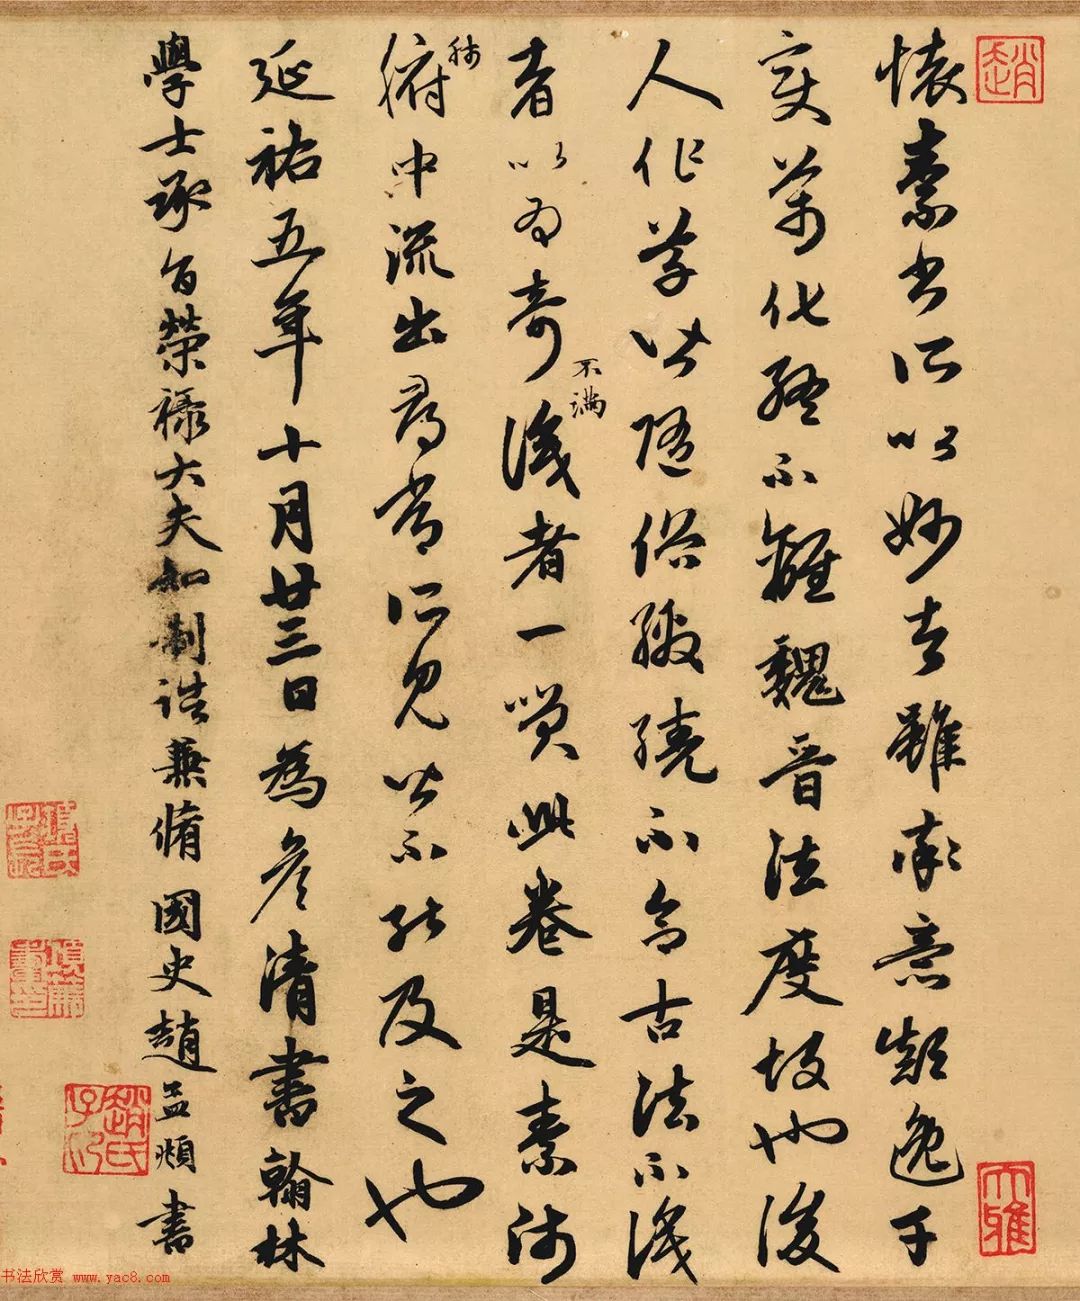 趙
大雅
懷素書所以妙者雖率意顛逸千
變萬化終不離魏晉法度故也後
人作草皆隨俗繳繞不合古法不識
者以為奇不滿識者一笑此卷是素師
肺腑中流出尋常所見皆不能及之也
延祐五年十月廿三日為彥清書翰林
學士承旨榮祿大夫知制誥兼脩國史趙孟頫書
趙氏子昂
书法欣赏 www.yac8.com